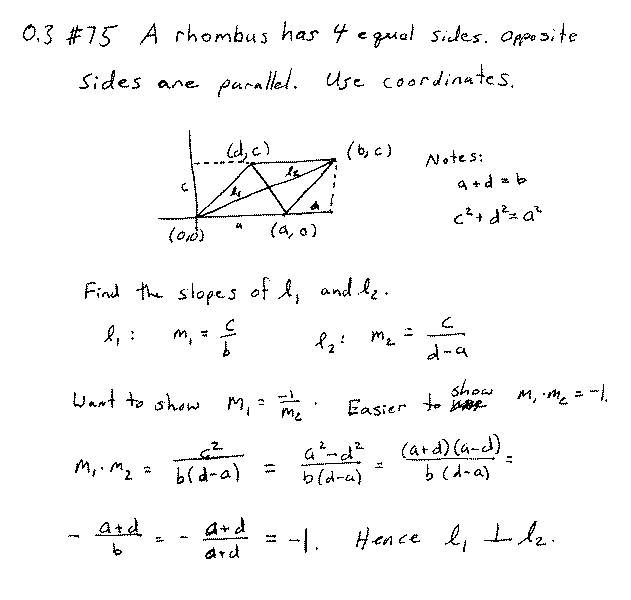 0.3 #75 A rhombus has 4 equal sides. Opposite
sides are parallel. Use coordinates.
(d,c)
(b,c)
Notes:
a+d=b
c²+d²=a²
c
l₁
l₂
d
a
(0,0)
(a,0)
Find the slopes of l₁ and l₂.
l₁: m₁ = c/b l₂: m₂ = c/(d-a)
Want to show m₁ = -1/m₂. Easier to show m₁·m₂ = -1.
m₁·m₂ = c²/(b(d-a)) = (a²-d²)/(b(d-a)) = (a+d)(a-d)/(b(d-a)) =
- (a+d)/b = - (a+d)/(a+d) = -1. Hence l₁ ⊥ l₂.